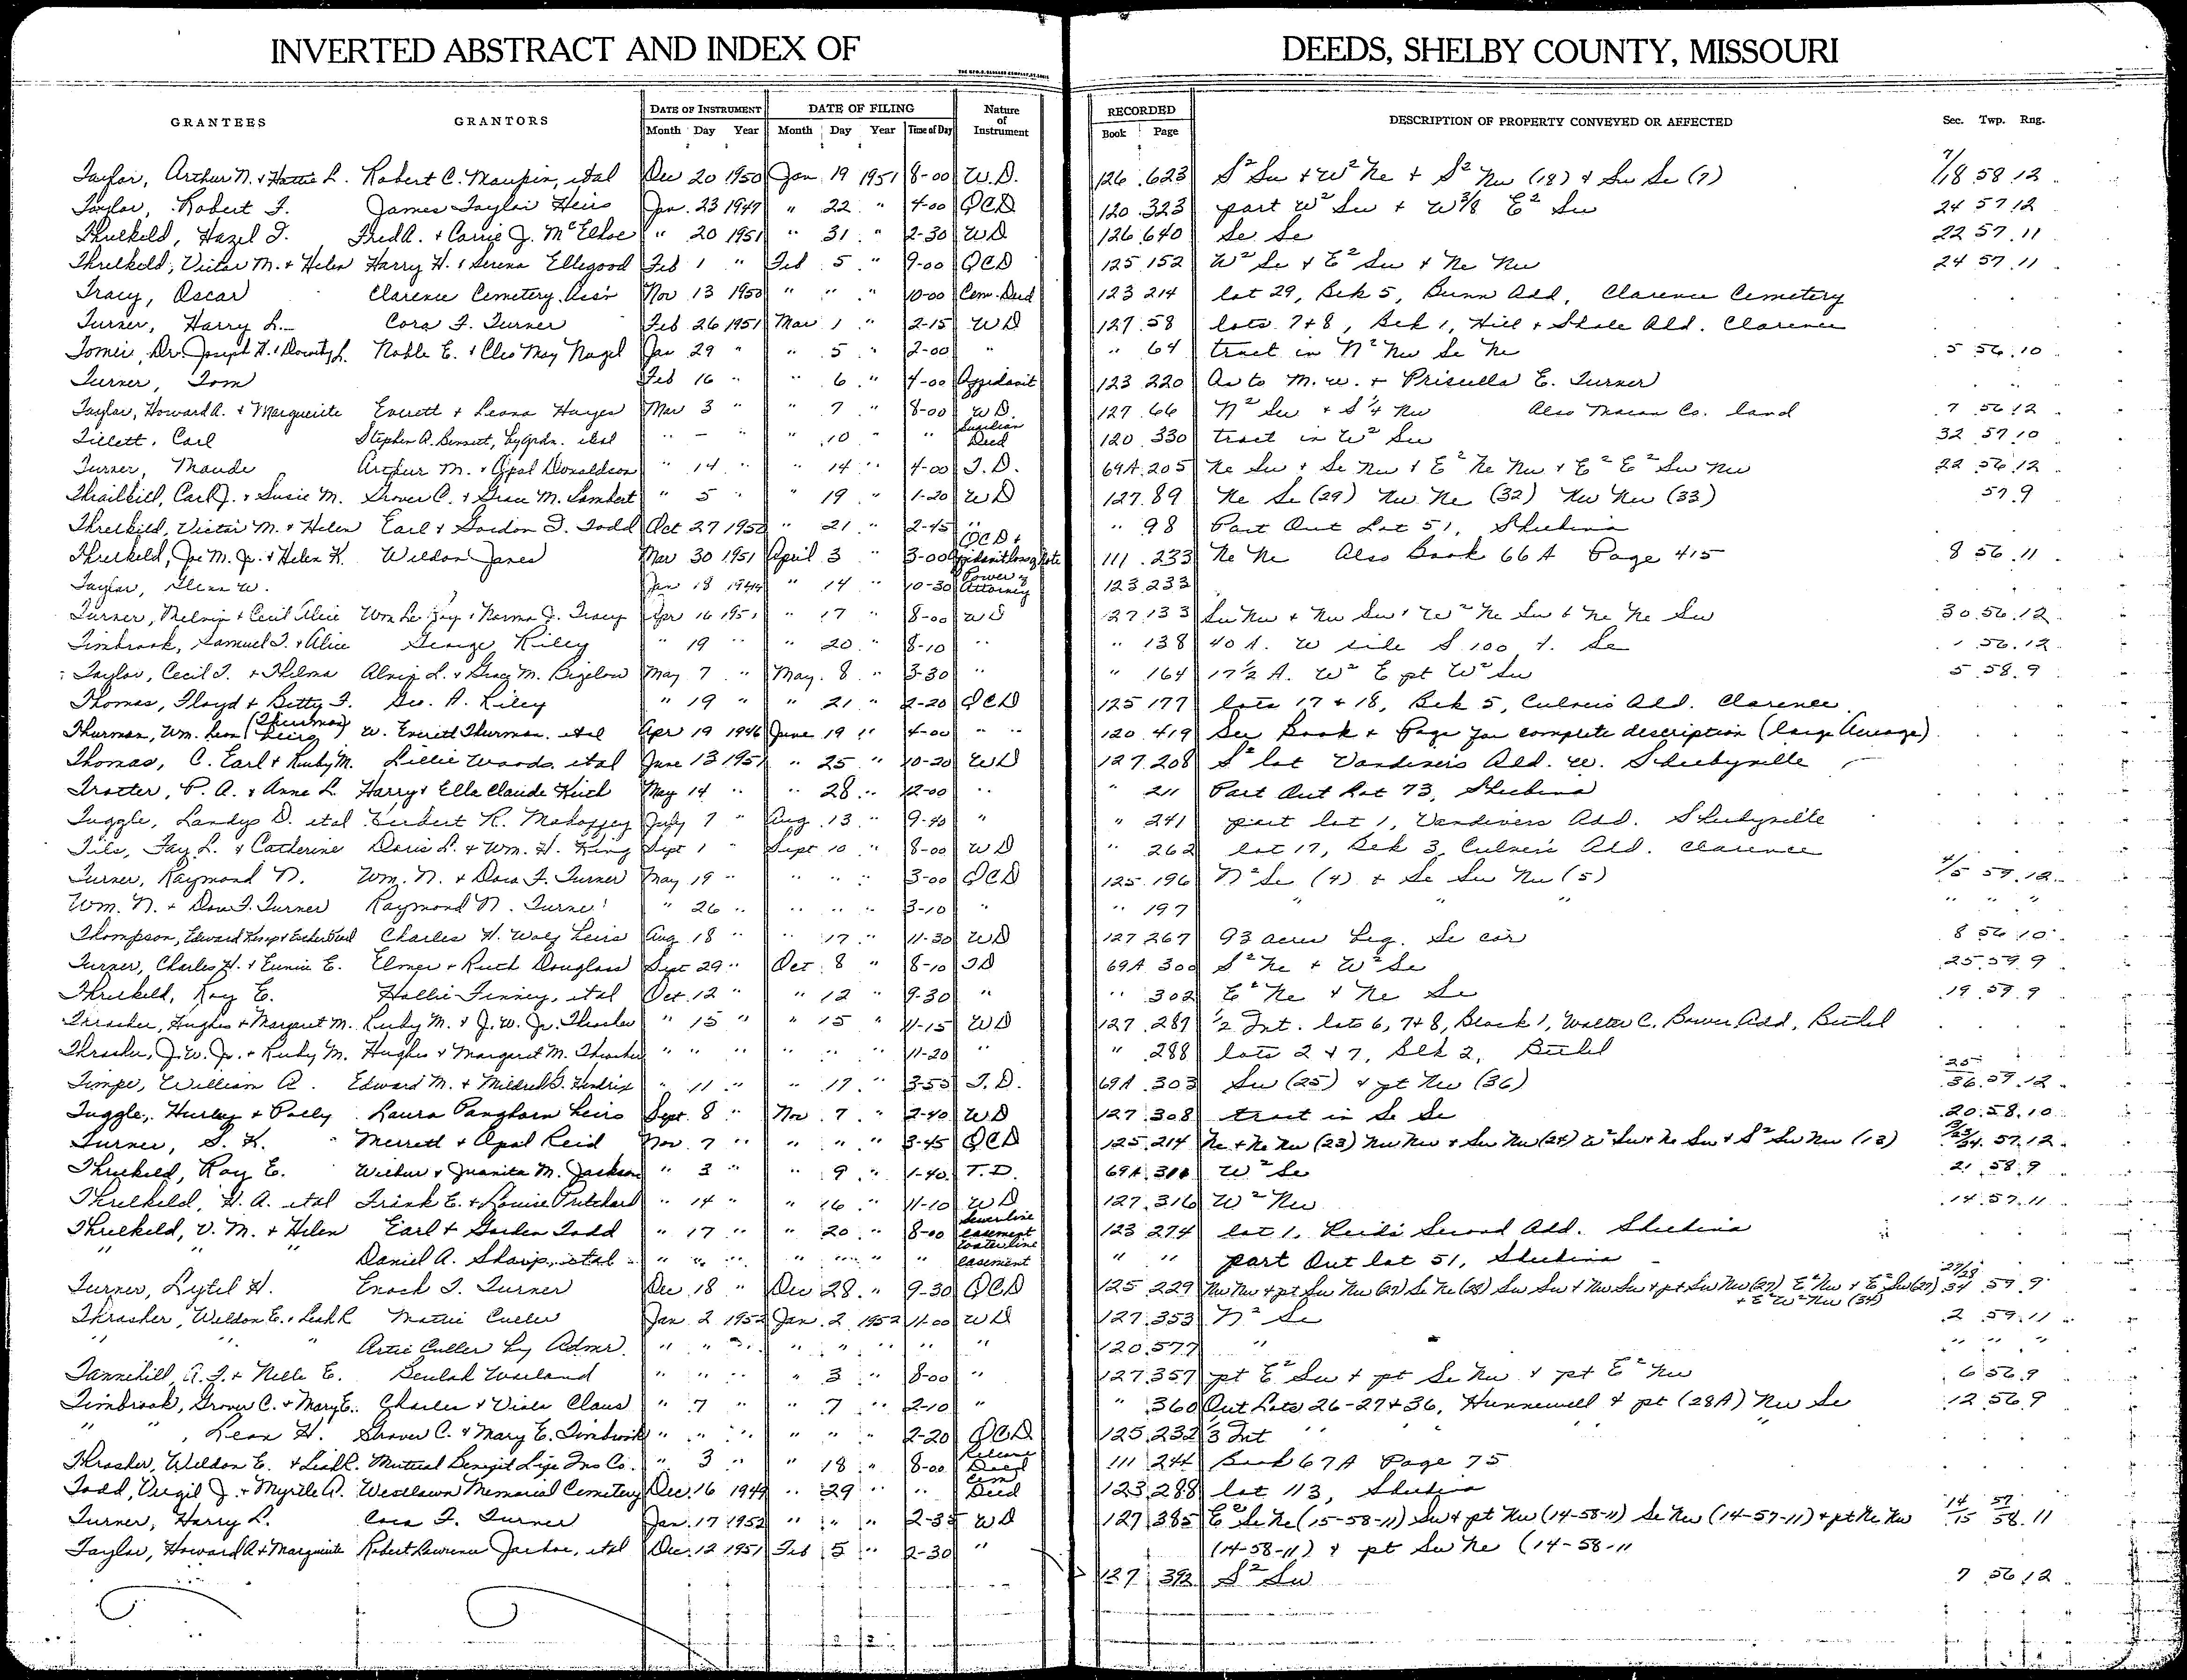 INVERTED ABSTRACT AND INDEX OF DEEDS, SHELBY COUNTY, MISSOURI
GRANTEES GRANTORS DATE OF INSTRUMENT DATE OF FILING Nature of Instrument RECORDED DESCRIPTION OF PROPERTY CONVEYED OR AFFECTED Sec. Twp. Rng.
Month Day Year Month Day Year Time of Day Book Page
Taylor, Arthur N. & Hattie L. Robert C. Maupin, etal Dec 20 1950 Jan 19 1951 8-00 W.D. 126 623 S² Sw + W² Ne + S² Nw (18) & Sw Se (7) 7/18 58 12
Taylor, Robert F. James Taylor Heirs Jan. 23 1947 " 22 " 4-00 QCD 120 323 part W² Sw + W 3/8 E² Sw 24 57 12
Threlkeld, Hazel I. Fred A. + Carrie J. McElhoe " 20 1951 " 31 " 2-30 WD 126 640 Se Se 22 57 11
Threlkeld, Victor M. & Helen Harry H. & Serena Ellegood Feb 1 " Feb 5 " 9-00 QCD 125 152 W² Se & E² Sw & Ne Nw 24 57 11
Tracy, Oscar Clarence Cemetery Ass'n Nov 13 1950 " " " 10-00 Cem. Deed 123 214 lot 29, Blk 5, Bunn Add, Clarence Cemetery
Turner, Harry L. Cora F. Turner Feb 26 1951 Mar 1 " 2-15 WD 127 58 lots 7+8, Blk 1, Hill + Shale Add. Clarence
Tomei, Dr. Joseph H. & Dorothy L. Noble E. & Cleo May Nagel Jan 29 " " 5 " 2-00 " " 64 tract in N² Nw Se Ne 5 56 10
Turner, Tom Feb 16 " " 6 " 4-00 Affidavit 123 220 As to M. W. + Priscilla E. Turner
Taylor, Howard A. & Marguerite Everett + Leona Hayes Mar 3 " " 7 " 8-00 WD. 127 66 N² Sw + S¼ Nw Also Macon Co. land 7 56 12
Tillett, Carl Stephen A. Bennett, by Grdn. etal " — " " 10 " " Guardian Deed 120 330 tract in W² Sw 32 57 10
Turner, Maude Arthur M. & Opal Donaldson " 14 " " 14 " 4-00 T.D. 69A 205 Ne Sw & Se Nw & E² Ne Nw & E² E² Sw Nw 22 56 12
Thrailkill, Carl J. & Susie M. Grover C. & Grace M. Lambert " 5 " " 19 " 1-20 WD 127 89 Ne Se (29) Nw Ne (32) Nw Nw (33) 57 9
Threlkeld, Victor M. & Helen Earl & Gordon D. Todd Oct 27 1950 " 21 " 2-45 " " 98 Part Out Lot 51, Shelbina
Threlkeld, Joe M. Jr. & Helen K. Weldon Jones Mar 30 1951 April 3 " 3-00 QCD & Affidavit 111 233 Ne Ne Also Book 66A Page 415 8 56 11
Taylor, Glenn W. Jan 18 1944 " 14 " 10-30 Power of Attorney 123 233
Turner, Melvin & Cecil Alice Wm Le Joy & Norma J. Tracy Apr 16 1951 " 17 " 8-00 WD 127 133 Sw Nw + Nw Sw & W² Ne Sw & Ne Ne Sw 30 56 12
Timbrook, Samuel T. & Alice George Riley " 19 " " 20 " 8-10 " " 138 40 A. W side S 100 A. Se 1 56 12
Taylor, Cecil T. & Thelma Alvin L. & Gracy M. Bigelow May 7 " May 8 " 3-30 " " 164 17½ A. W² E pt W² Sw 5 58 9
Thomas, Floyd & Betty F. Geo. A. Riley " 19 " " 21 " 2-20 QCD 125 177 lots 17 + 18, Blk 5, Culvers Add. Clarence
Thurman, Wm. Leon (Thurman heirs) W. Everett Thurman, etal Apr 19 1946 June 19 " 4-00 " " 120 419 See Book & Page for complete description (large Acreage)
Thomas, C. Earl & Ruby M. Lillie Woods, etal June 13 1951 " 25 " 10-20 WD 127 208 S² lot Vandivers Add. W. Shelbyville
Trotter, P. A. & Anne L. Harry & Ella Claude Keith May 14 " " 28 " 12-00 " " 211 Part Out Lot 73, Shelbina
Tuggle, Landys D. etal Herbert R. Mahaffey July 7 " Aug. 13 " 9-40 " " 241 part lot 1, Vandivers Add. Shelbyville
Tils, Fay L. & Catherine Doris L. & Wm. H. King Sept 1 " Sept 10 " 8-00 WD " 262 lot 17, Blk 3, Culver's Add. Clarence
Turner, Raymond N. Wm. N. & Dora F. Turner May 19 " " " " 3-00 QCD 125 196 N² Se (4) & Se Sw Nw (5) 4/5 59 12
Wm. N. + Dora F. Turner Raymond N. Turner " 26 " " " " 3-10 " " 197 " " " " " "
Thompson, Edward Kemp & Esther Pearl Charles H. Wolf heirs Aug 18 " " 17 " 11-30 WD 127 267 93 acres beg. Se cor 8 56 10
Turner, Charles H. & Eunice E. Elmer + Ruth Douglass Sept 29 " Oct 8 " 8-10 TD 69A 300 S² Ne + W² Se 25 59 9
Threlkeld, Ray E. Hallie Finney, etal Oct. 12 " " 12 " 9-30 " " 302 E² Ne & Ne Se 19 59 9
Thrasher, Hughes & Margaret M. Ruby M. & J. W. Jr. Thrasher " 15 " " 15 " 11-15 WD 127 287 ½ Int. lots 6, 7+8, Block 1, Walter C. Bower Add, Bethel
Thrasher, J.W. Jr. & Ruby M. Hughes & Margaret M. Thrasher " " " " " " 11-20 " " 288 lots 2 & 7, Blk 2, Bethel
Timpe, William A. Edward M. & Mildred G. Hendrix " 11 " " 17 " 3-50 T.D. 69A 303 Sw (25) & pt Nw (36) 25/36 59 12
Tuggle, Hurley & Polly Laura Pangborn heirs Sept. 8 " Nov 7 " 2-40 WD 127 308 tract in Se Se 20 58 10
Turner, S. K. Merrett & Opal Reid Nov. 7 " " " " 3-45 QCD 125 214 Ne + Ne Nw (23) Nw Nw + Sw Nw (24) W² Sw + Ne Sw & S² Sw Nw (13) 13/23/24 57 12
Threlkeld, Ray E. Wilbur & Juanita M. Jackson " 3 " " 9 " 1-40 T.D. 69A 311 W² Se 21 58 9
Threlkeld, H. A. etal Frank E. & Louise Pritchard " 14 " " 16 " 11-10 WD 127 316 W² Nw 14 57 11
Threlkeld, V. M. & Helen Earl & Gorden Todd " 17 " " 20 " 8-00 Sewerline easement 123 274 lot 1, Reids Second Add. Shelbina
" " " Daniel A. Sharp, etal " " " " " " " Waterline easement " " part Out lot 51, Shelbina
Turner, Lytel H. Enoch T. Turner Dec 18 " Dec 28 " 9-30 QCD 125 229 Nw Nw & pt Sw Nw (27) Se Ne (28) Sw Sw & Nw Sw & pt Sw Nw (27) E² Nw & E² Sw (27) + E² W² Nw (34) 27/28/34 59 9
Thrasher, Weldon E. & Leah R. Mattie Culler Jan 2 1952 Jan. 2 1952 11-00 WD 127 353 N² Se 2 59 11
" " " Artie Culler by Admr. " " " " " " " " 120 577 " " " "
Tannehill, A. F. & Nelle E. Beulah Worland " " " " 3 " 8-00 " 127 357 pt E² Sw & pt Se Nw & pt E² Nw 6 56 9
Timbrook, Grover C. & Mary E. Charles & Viola Claus " 7 " " 7 " 2-10 " " 360 Out Lots 26-27+36, Hunnewell & pt (28A) Nw Se 12 56 9
" ", Leon H. Grover C. & Mary E. Timbrook " " " " " " 2-20 QCD 125 232 1/3 Int " " "
Thrasher, Weldon E. & Leah R. Mutual Benefit Life Ins Co. " 3 " " 18 " 8-00 Release Deed 111 244 Book 67A Page 75
Todd, Virgil J. & Myrtle A. Westlawn Memorial Cemetery Dec. 16 1949 " 29 " " Cem Deed 123 288 lot 113, Shelbina
Turner, Harry L. Cora F. Turner Jan. 17 1952 " " " 2-35 WD 127 385 E² Se Ne (15-58-11) Sw & pt Nw (14-58-11) Se Nw (14-57-11) + pt Ne Nw 14/15 57/58 11
Taylor, Howard A & Marguerite Robert Lawrence Jarboe, etal Dec. 12 1951 Feb 5 " 2-30 " (14-58-11) & pt Sw Ne (14-58-11
127 392 S² Sw 7 56 12